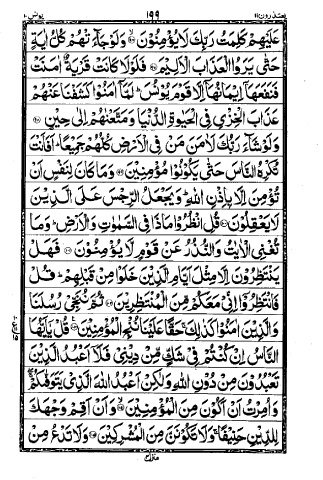 یونس ۱۰ ۱۹۹ یعتذرون ۱۱
عَلَيْهِمْ كَلِمَتُ رَبِّكَ لَا يُؤْمِنُوْنَ وَلَوْ جَآءَتْهُمْ كُلُّ اٰيَةٍ
حَتّٰى يَرَوُا الْعَذَابَ الْاَلِيْمَ فَلَوْلَا كَانَتْ قَرْيَةٌ اٰمَنَتْ
فَنَفَعَهَاۤ اِيْمَانُهَاۤ اِلَّا قَوْمَ يُوْنُسَ لَمَّاۤ اٰمَنُوْا كَشَفْنَا عَنْهُمْ
عَذَابَ الْخِزْيِ فِى الْحَيٰوةِ الدُّنْيَا وَمَتَّعْنٰهُمْ اِلٰى حِيْنٍ
وَلَوْ شَآءَ رَبُّكَ لَاٰمَنَ مَنْ فِى الْاَرْضِ كُلُّهُمْ جَمِيْعًا اَفَاَنْتَ
تُكْرِهُ النَّاسَ حَتّٰى يَكُوْنُوْا مُؤْمِنِيْنَ وَمَا كَانَ لِنَفْسٍ اَنْ
تُؤْمِنَ اِلَّا بِاِذْنِ اللّٰهِ وَيَجْعَلُ الرِّجْسَ عَلَى الَّذِيْنَ
لَا يَعْقِلُوْنَ قُلِ انْظُرُوْا مَاذَا فِى السَّمٰوٰتِ وَالْاَرْضِ وَمَا
تُغْنِى الْاٰيٰتُ وَالنُّذُرُ عَنْ قَوْمٍ لَّا يُؤْمِنُوْنَ فَهَلْ
يَنْتَظِرُوْنَ اِلَّا مِثْلَ اَيَّامِ الَّذِيْنَ خَلَوْا مِنْ قَبْلِهِمْ قُلْ
فَانْتَظِرُوْۤا اِنِّىْ مَعَكُمْ مِّنَ الْمُنْتَظِرِيْنَ ثُمَّ نُنَجِّىْ رُسُلَنَا
وَالَّذِيْنَ اٰمَنُوْا كَذٰلِكَ حَقًّا عَلَيْنَا نُنْجِ الْمُؤْمِنِيْنَ قُلْ يٰۤاَيُّهَا
النَّاسُ اِنْ كُنْتُمْ فِىْ شَكٍّ مِّنْ دِيْنِىْ فَلَاۤ اَعْبُدُ الَّذِيْنَ
تَعْبُدُوْنَ مِنْ دُوْنِ اللّٰهِ وَلٰكِنْ اَعْبُدُ اللّٰهَ الَّذِىْ يَتَوَفّٰىكُمْ
وَاُمِرْتُ اَنْ اَكُوْنَ مِنَ الْمُؤْمِنِيْنَ وَاَنْ اَقِمْ وَجْهَكَ
لِلدِّيْنِ حَنِيْفًا وَلَا تَكُوْنَنَّ مِنَ الْمُشْرِكِيْنَ وَلَا تَدْعُ مِنْ